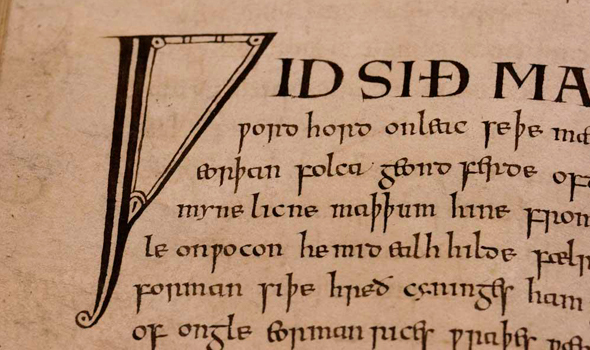 ǷIDSIÐ MA
ƿord hord onleac seþe mæ
eorþan folca geond ferde of
myne licne maþþum hine from
le onƿocon he mid ealh hilde fælr
forman siþe hreð cyninges ham
of ongle eorman rices ƿraþes